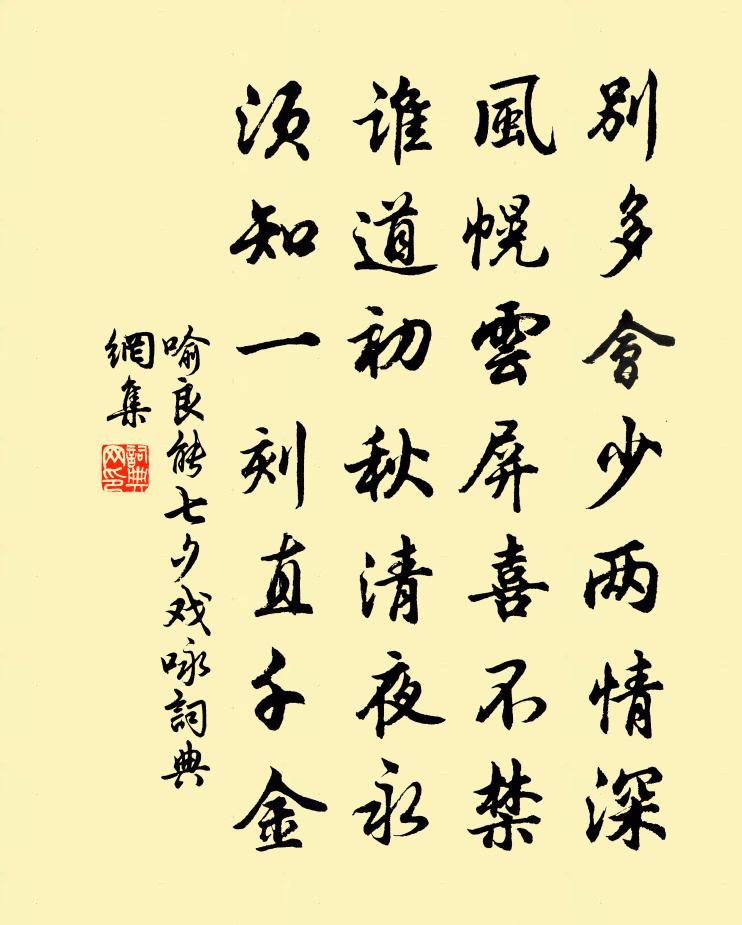 別多會少两情深
風幌雲屏喜不禁
誰道初秋清夜永
须知一刻直千金
喻良能七夕戏咏詞典
網集
詞典
网印